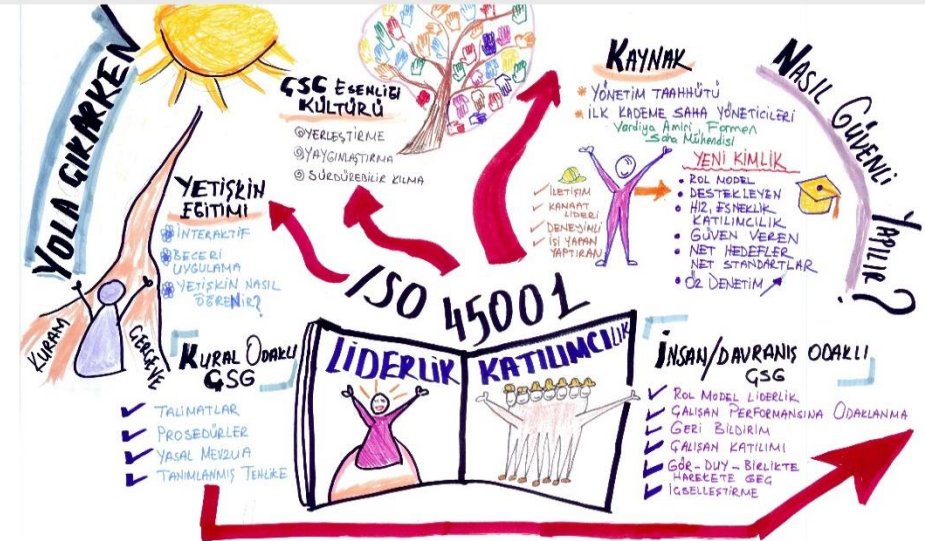 YOLA ÇIKARKEN
KURAM
ÇERÇEVE
YETİŞKİN
EĞİTİMİ
İNTERAKTİF
BECERİ
UYGULAMA
YETİŞKİN NASIL
ÖĞRENİR?
ÇSG ESENLİĞİ
KÜLTÜRÜ
YERLEŞTİRME
YAYGINLAŞTIRMA
SÜRDÜREBİLİR KILMA
KAYNAK
YÖNETİM TAAHHÜTÜ
İLK KADEME SAHA YÖNETİCİLERİ
Vardiya Amiri, Formen
Saha Mühendisi
İLETİŞİM
KANAAT
LİDERİ
DENEYİMLİ
İŞİ YAPAN
YAPTIRAN
YENİ KİMLİK
ROL MODEL
DESTEKLEYEN
HIZ, ESNEKLİK
KATILIMCILIK
GÜVEN VEREN
NET HEDEFLER
NET STANDARTLAR
ÖZ DENETİM
NASIL GÜVENLİ YAPILIR?
ISO 45001
LİDERLİK
KATILIMCILIK
KURAL ODAKLI
ÇSG
TALİMATLAR
PROSEDÜRLER
YASAL MEVZUA
TANIMLANMIŞ TEHLİKE
İNSAN/DAVRANIŞ ODAKLI
ÇSG
ROL MODEL LİDERLİK
ÇALIŞAN PERFORMANSINA ODAKLANMA
GERİ BİLDİRİM
ÇALIŞAN KATILIMI
GÖR-DUY-BİRLİKTE
HAREKETE GEÇ
İÇSELLEŞTİRME